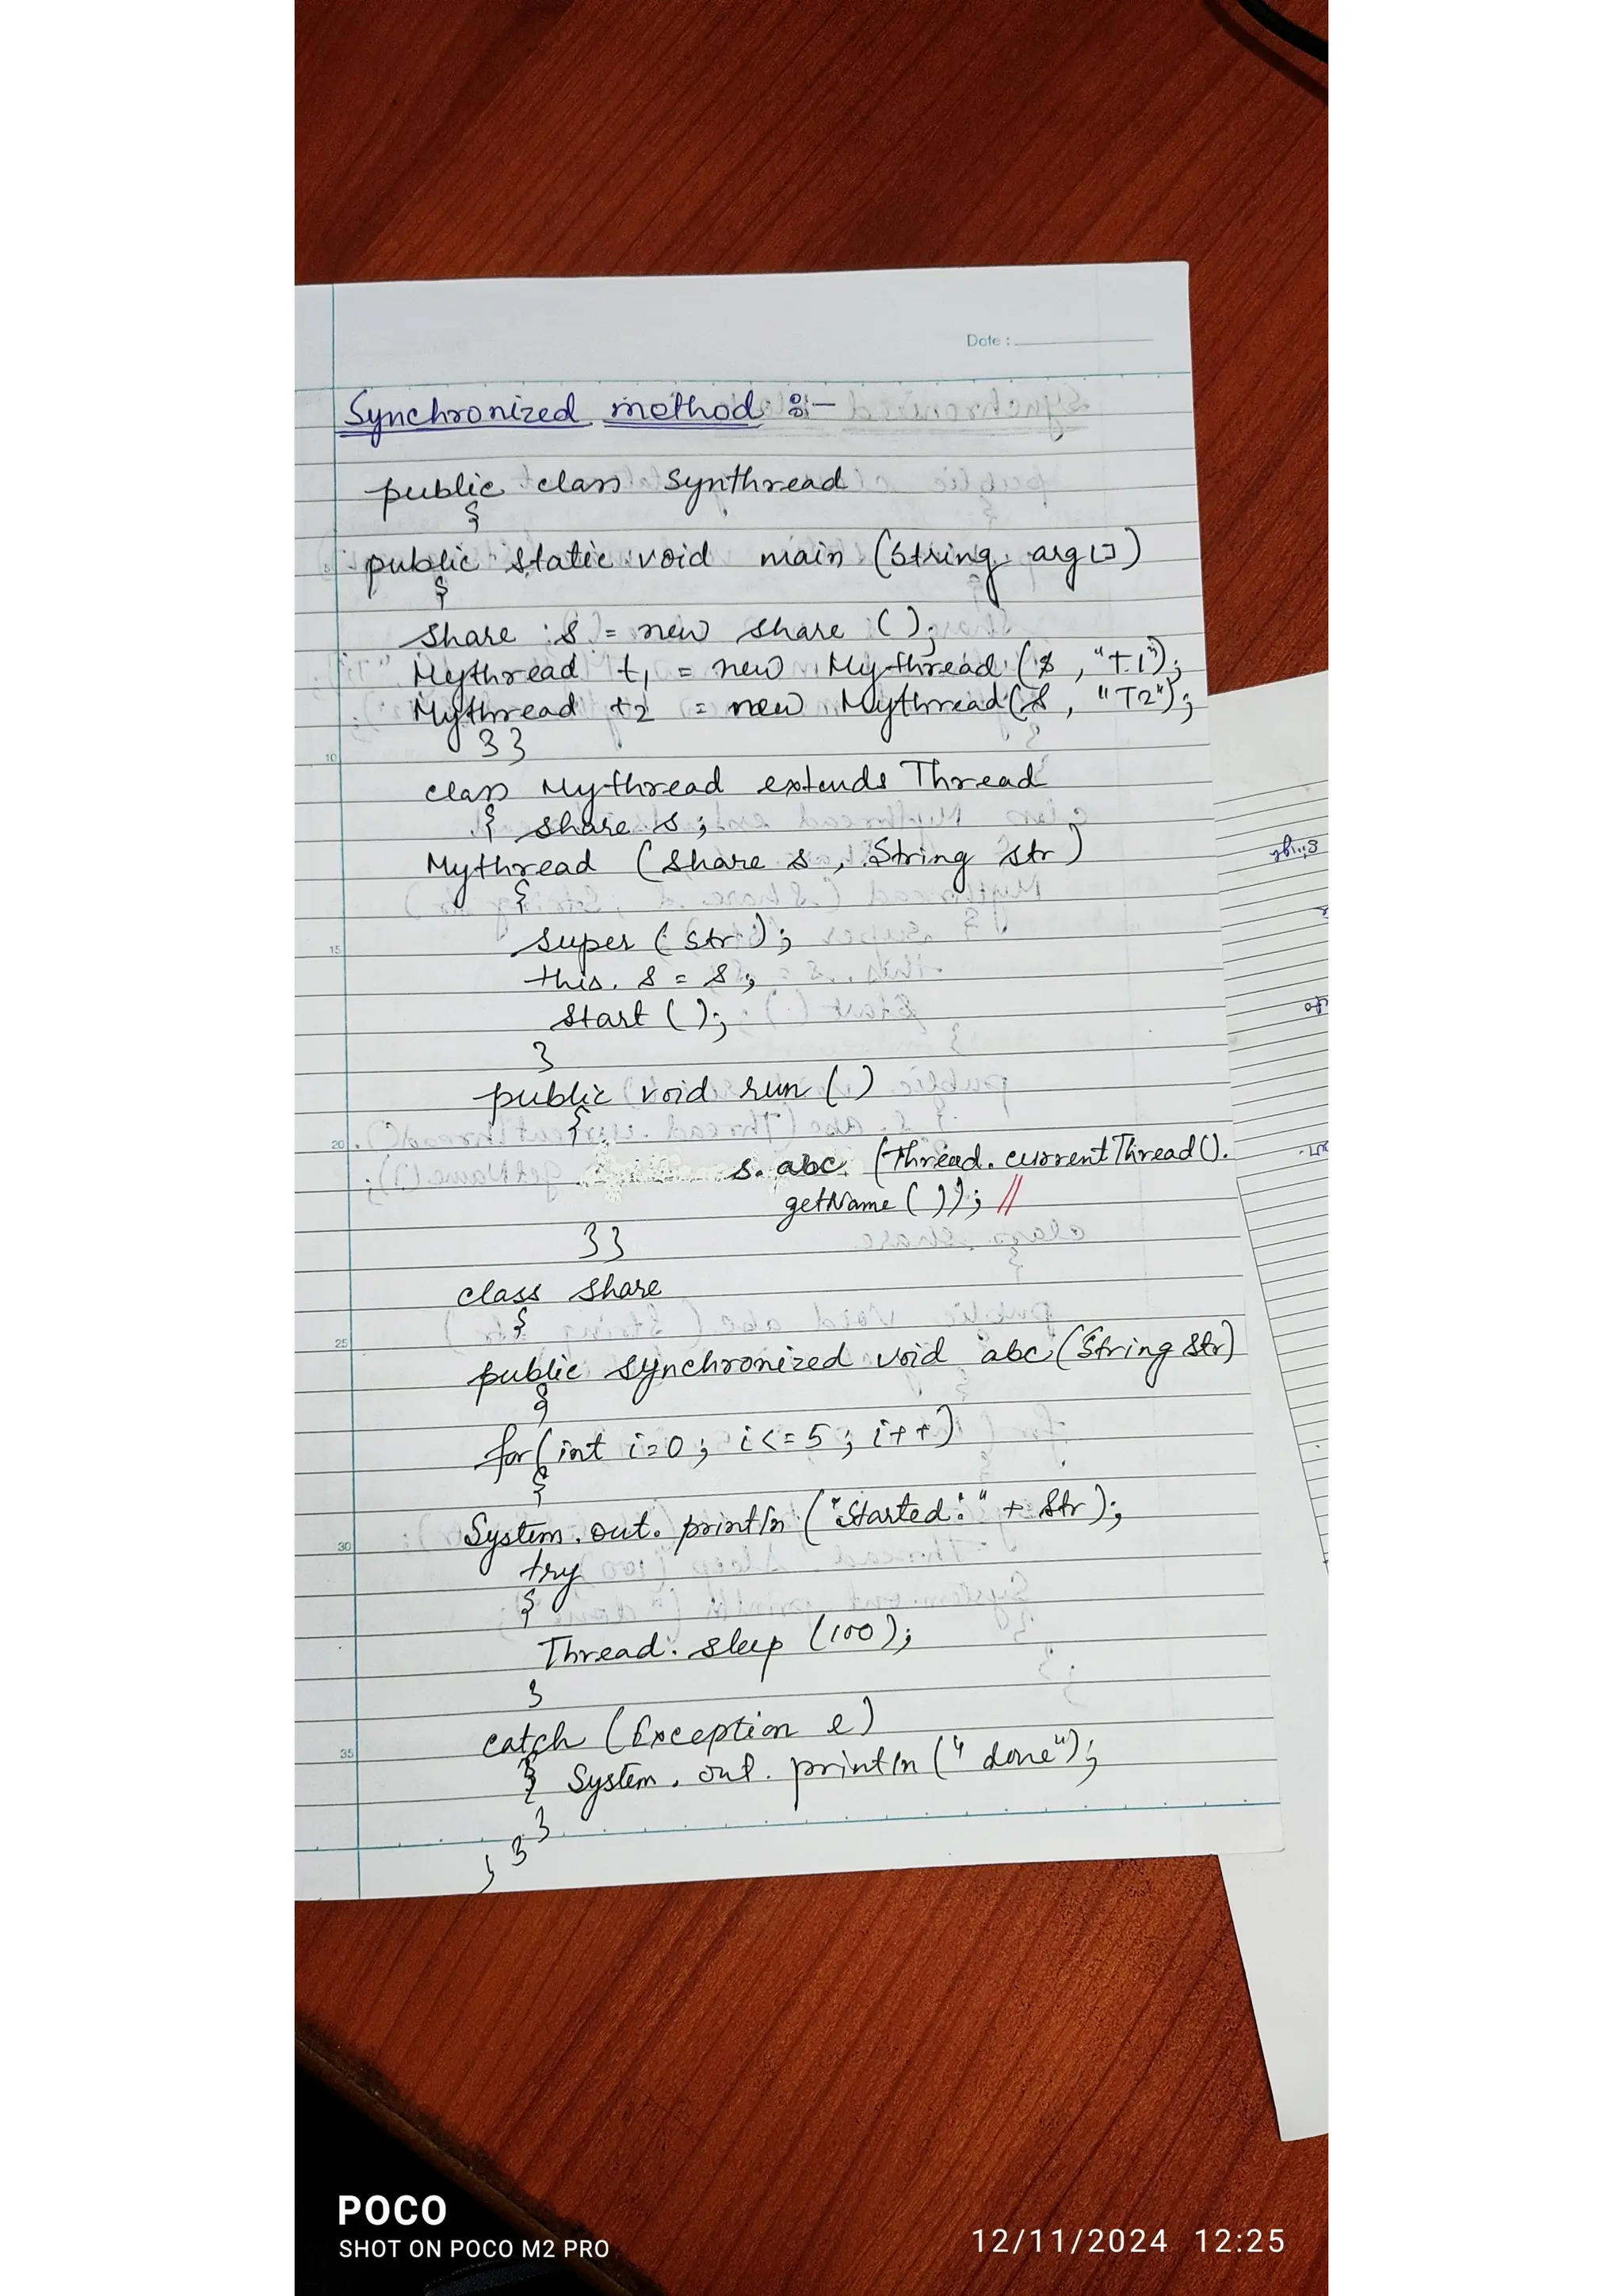 Date :
Synchronized method :-
public class Synthread
{
public static void main (String arg[])
{
share s = new share ();
Mythread t1 = new Mythread (s, "T1");
Mythread t2 = new Mythread (s, "T2");
}}
class Mythread extends Thread
{ share s;
Mythread (share s, String str)
{
super (str);
this. s = s;
start ();
}
public void run ()
{
s. abc (Thread. currentThread().
getName ()); //
}}
class share
{
public synchronized void abc (String str)
{
for (int i=0; i<=5; i++)
{
System. out. println ("Started:" + str);
try
{
Thread. sleep (100);
}
catch (Exception e)
{ System. out. println ("done");
}
}
}
5
10
15
20
25
30
35
POCO
SHOT ON POCO M2 PRO
12/11/2024 12:25